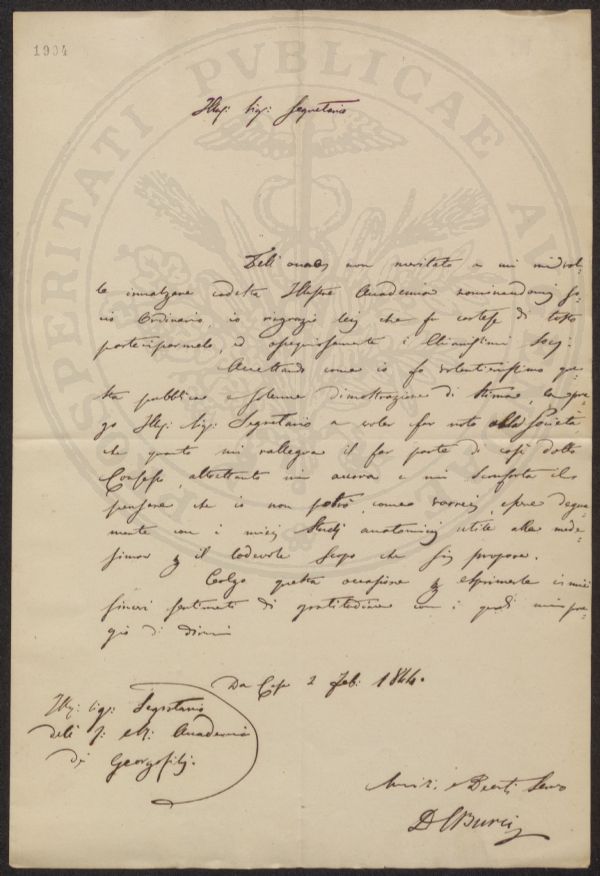 1904
PROSPERITATI PVBLICAE AVGENDAE
Illmo: Sigr: Segretario
Dell'onore non meritato a cui mi vol-
le innalzare codesta Illustre Accademia nominandomi So-
cio Ordinario, io ringrazio lei che fu cortese di tosto
parteciparmelo, ed ossequiosamente i Chiarissimi Socj.
Accettando come io fo volentierissimo que-
sta pubblica e solenne dimostrazione di stima, la pre-
go Illmo: Sigr: Segretario a voler far noto alla Società
che quanto mi rallegra il far parte di così dotto
Consesso, altrettanto mi accora e mi sconforta il
pensare che io non potrò, come vorrei, essere degna-
mente con i miei Studj anatomici utile alla mede-
sima e il lodevole scopo che si propone.
Colgo questa occasione esprimerle i miei
sinceri sentimenti di gratitudine con i quali mi pre-
gio di dirmi
Da Casa 2 Feb: 1844.
Illmo: Sigr: Segretario
dell' I: e R: Accademia
di Georgofili.
Servo
D. C Burci